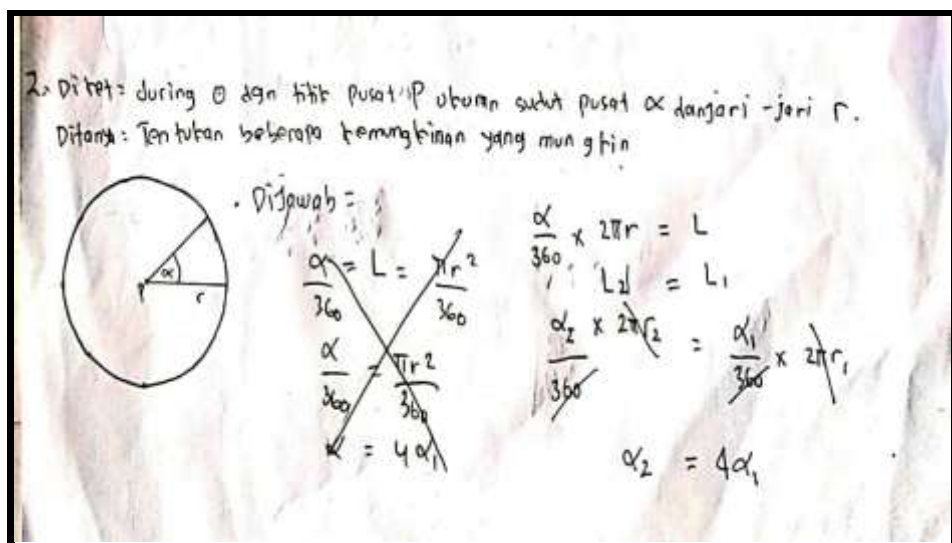 2. Diket = during θ dgn titik pusat P ukuran sudut pusat α dan jari-jari r.
Ditanya : Tentukan beberapa kemungkinan yang mungkin
Dijawab =
α/360 = L = πr²/360
α/360 = πr²/360
α = 4α₁
α/360 × 2πr = L
L₂ = L₁
α₂/360 × 2πr₂ = α₁/360 × 2πr₁
α₂ = 4α₁
P α r